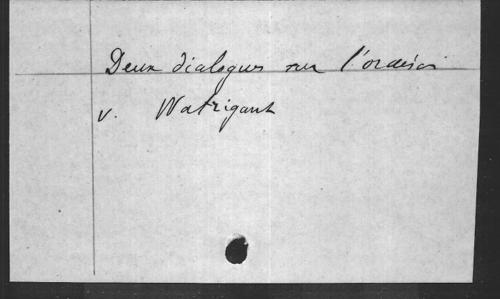 Deux dialogues sur l'oraison
v. Watrigant